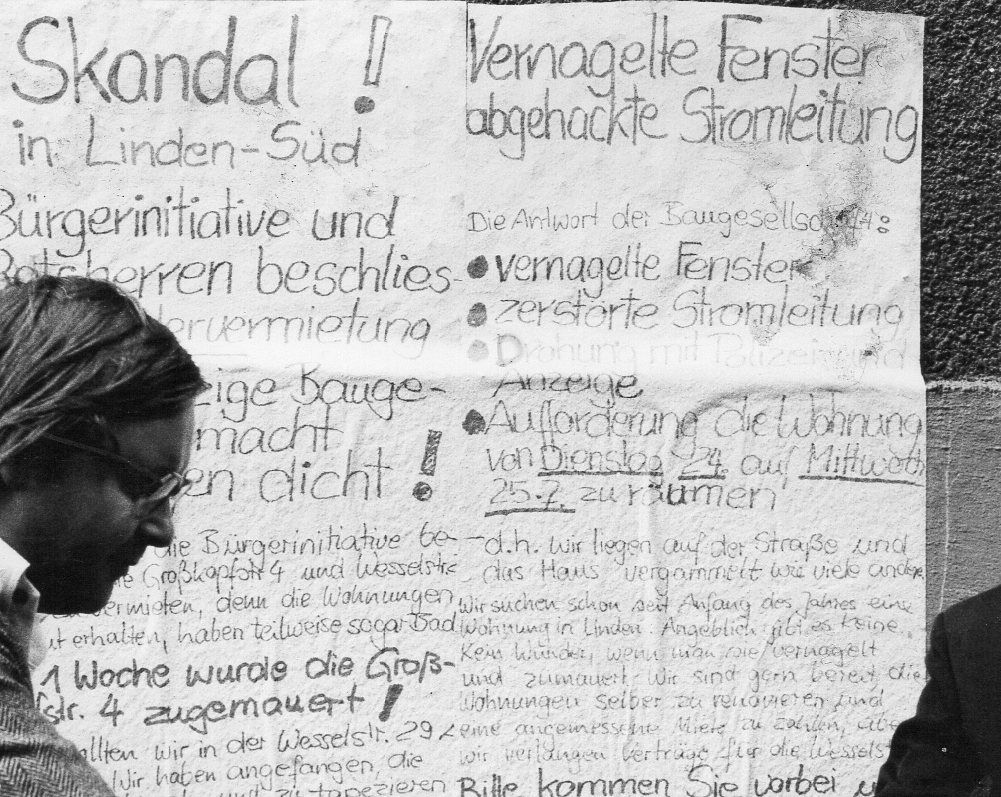 Skandal !
in Linden-Süd
Bürgerinitiative und
Ratsherren beschlies-
dervermietung
zige Bauge-
macht
en dicht !
die Bürgerinitiative be-
Großkopfstr 4 und Wesselstr.
vermieten, denn die Wohnungen
ut erhalten, haben teilweise sogar Bad
1 Woche wurde die Groß-
str. 4 zugemauert !
ollten wir in der Wesselstr. 29
Wir haben angefangen, die
und zu tapezieren
Vernagelte Fenster
abgehackte Stromleitung
Die Antwort der Baugesellschaft:
• vernagelte Fenster
• zerstörte Stromleitung
• Drohung mit Polizei und
Anzeige
• Aufforderung die Wohnung
von Dienstag 24. auf Mittwoch
25.7. zu räumen
d.h. wir liegen auf der Straße und
das Haus vergammelt wie viele andere
Wir suchen schon seit Anfang des Jahres eine
Wohnung in Linden. Angeblich gibt es keine.
Kein Wunder, wenn man sie vernagelt
und zumauert. Wir sind gern bereit, die
Wohnungen selber zu renovieren und
eine angemessene Miete zu zahlen, aber
wir verlangen Verträge für die Wesselst
Bitte kommen Sie vorbei u